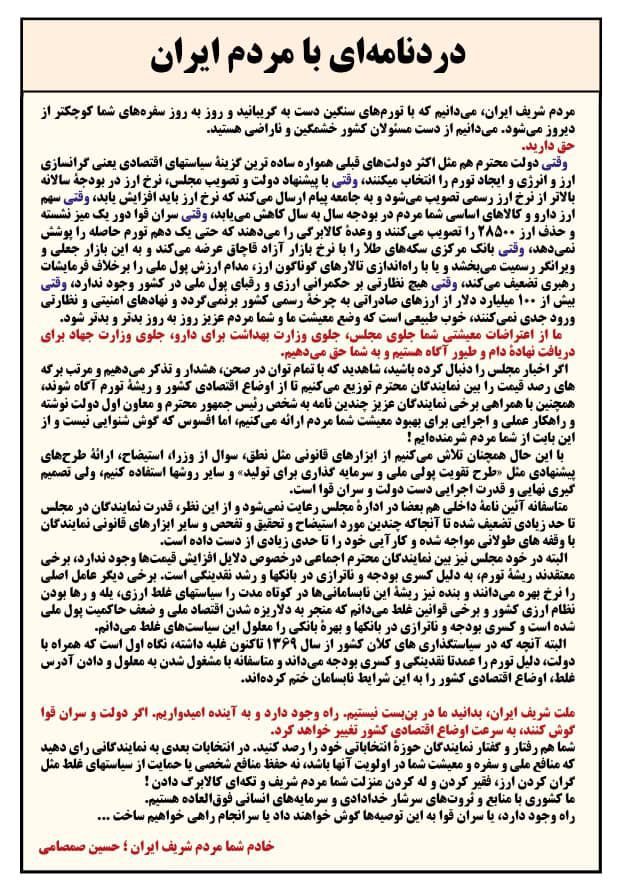 دردنامه‌ای با مردم ایران
مردم شریف ایران، می‌دانیم که با تورم‌های سنگین دست به گریبانید و روز به روز سفره‌های شما کوچکتر از
دیروز می‌شود. می‌دانیم از دست مسئولان کشور خشمگین و ناراضی هستید.
حق دارید.
وقتی دولت محترم هم مثل اکثر دولت‌های قبلی همواره ساده ترین گزینهٔ سیاستهای اقتصادی یعنی گرانسازی
ارز و انرژی و ایجاد تورم را انتخاب میکنند، وقتی با پیشنهاد دولت و تصویب مجلس، نرخ ارز در بودجهٔ سالانه
بالاتر از نرخ ارز رسمی تصویب می‌شود و به جامعه پیام ارسال می‌کند که نرخ ارز باید افزایش یابد، وقتی سهم
ارز دارو و کالاهای اساسی شما مردم در بودجه سال به سال کاهش می‌یابد، وقتی سران قوا دور یک میز نشسته
و حذف ارز ۲۸۵۰۰ را تصویب می‌کنند و وعدهٔ کالابرگی را می‌دهند که حتی یک دهم تورم حاصله را پوشش
نمی‌دهد، وقتی بانک مرکزی سکه‌های طلا را با نرخ بازار آزاد قاچاق عرضه می‌کند و به این بازار جعلی و
ویرانگر رسمیت می‌بخشد و یا با راه‌اندازی تالارهای گوناگون ارز، مدام ارزش پول ملی را برخلاف فرمایشات
رهبری تضعیف می‌کند، وقتی هیچ نظارتی بر حکمرانی ارزی و رقبای پول ملی در کشور وجود ندارد، وقتی
بیش از ۱۰۰ میلیارد دلار از ارزهای صادراتی به چرخهٔ رسمی کشور برنمی‌گردد و نهادهای امنیتی و نظارتی
ورود جدی نمی‌کنند، خوب طبیعی است که وضع معیشت ما و شما مردم عزیز روز به روز بدتر و بدتر شود.
ما از اعتراضات معیشتی شما جلوی مجلس، جلوی وزارت بهداشت برای دارو، جلوی وزارت جهاد برای
دریافت نهادهٔ دام و طیور آگاه هستیم و به شما حق می‌دهیم.
اگر اخبار مجلس را دنبال کرده باشید، شاهدید که با تمام توان در صحن، هشدار و تذکر می‌دهیم و مرتب برگه
های رصد قیمت را بین نمایندگان محترم توزیع می‌کنیم تا از اوضاع اقتصادی کشور و ریشهٔ تورم آگاه شوند،
همچنین با همراهی برخی نمایندگان عزیز چندین نامه به شخص رئیس جمهور محترم و معاون اول دولت نوشته
و راهکار عملی و اجرایی برای بهبود معیشت شما مردم ارائه می‌کنیم، اما افسوس که گوش شنوایی نیست و از
این بابت از شما مردم شرمنده‌ایم !
با این حال همچنان تلاش می‌کنیم از ابزارهای قانونی مثل نطق، سوال از وزرا، استیضاح، ارائهٔ طرح‌های
پیشنهادی مثل «طرح تقویت پولی ملی و سرمایه گذاری برای تولید» و سایر روشها استفاده کنیم، ولی تصمیم
گیری نهایی و قدرت اجرایی دست دولت و سران قوا است.
متاسفانه آئین نامهٔ داخلی هم بعضا در ادارهٔ مجلس رعایت نمی‌شود و از این نظر، قدرت نمایندگان در مجلس
تا حد زیادی تضعیف شده تا آنجاکه چندین مورد استیضاح و تحقیق و تفحص و سایر ابزارهای قانونی نمایندگان
با وقفه های طولانی مواجه شده و کارآیی خود را تا حدی زیادی از دست داده است.
البته در خود مجلس نیز بین نمایندگان محترم اجماعی درخصوص دلایل افزایش قیمت‌ها وجود ندارد، برخی
معتقدند ریشهٔ تورم، به دلیل کسری بودجه و ناترازی در بانکها و رشد نقدینگی است. برخی دیگر عامل اصلی
را نرخ بهره می‌دانند و بنده نیز ریشهٔ این نابسامانی‌ها در کوتاه مدت را سیاستهای غلط ارزی، یله و رها بودن
نظام ارزی کشور و برخی قوانین غلط می‌دانم که منجر به دلاریزه شدن اقتصاد ملی و ضعف حاکمیت پول ملی
شده است و کسری بودجه و ناترازی در بانکها و بهرهٔ بانکی را معلول این سیاست‌های غلط می‌دانم.
البته آنچه که در سیاستگذاری های کلان کشور از سال ۱۳۶۹ تاکنون غلبه داشته، نگاه اول است که همراه با
دولت، دلیل تورم را عمدتا نقدینگی و کسری بودجه می‌داند و متاسفانه با مشغول شدن به معلول و دادن آدرس
غلط، اوضاع اقتصادی کشور را به این شرایط نابسامان ختم کرده‌اند.
ملت شریف ایران، بدانید ما در بن‌بست نیستیم. راه وجود دارد و به آینده امیدواریم. اگر دولت و سران قوا
گوش کنند، به سرعت اوضاع اقتصادی کشور تغییر خواهد کرد.
شما هم رفتار و گفتار نمایندگان حوزهٔ انتخاباتی خود را رصد کنید. در انتخابات بعدی به نمایندگانی رای دهید
که منافع ملی و سفره و معیشت شما در اولویت آنها باشد، نه حفظ منافع شخصی یا حمایت از سیاستهای غلط مثل
گران کردن ارز، فقیر کردن و له کردن منزلت شما مردم شریف و تکه‌ای کالابرگ دادن !
ما کشوری با منابع و ثروت‌های سرشار خدادادی و سرمایه‌های انسانی فوق‌العاده هستیم.
راه وجود دارد، یا سران قوا به این توصیه‌ها گوش خواهند داد یا سرانجام راهی خواهیم ساخت ...
خادم شما مردم شریف ایران ؛ حسین صمصامی